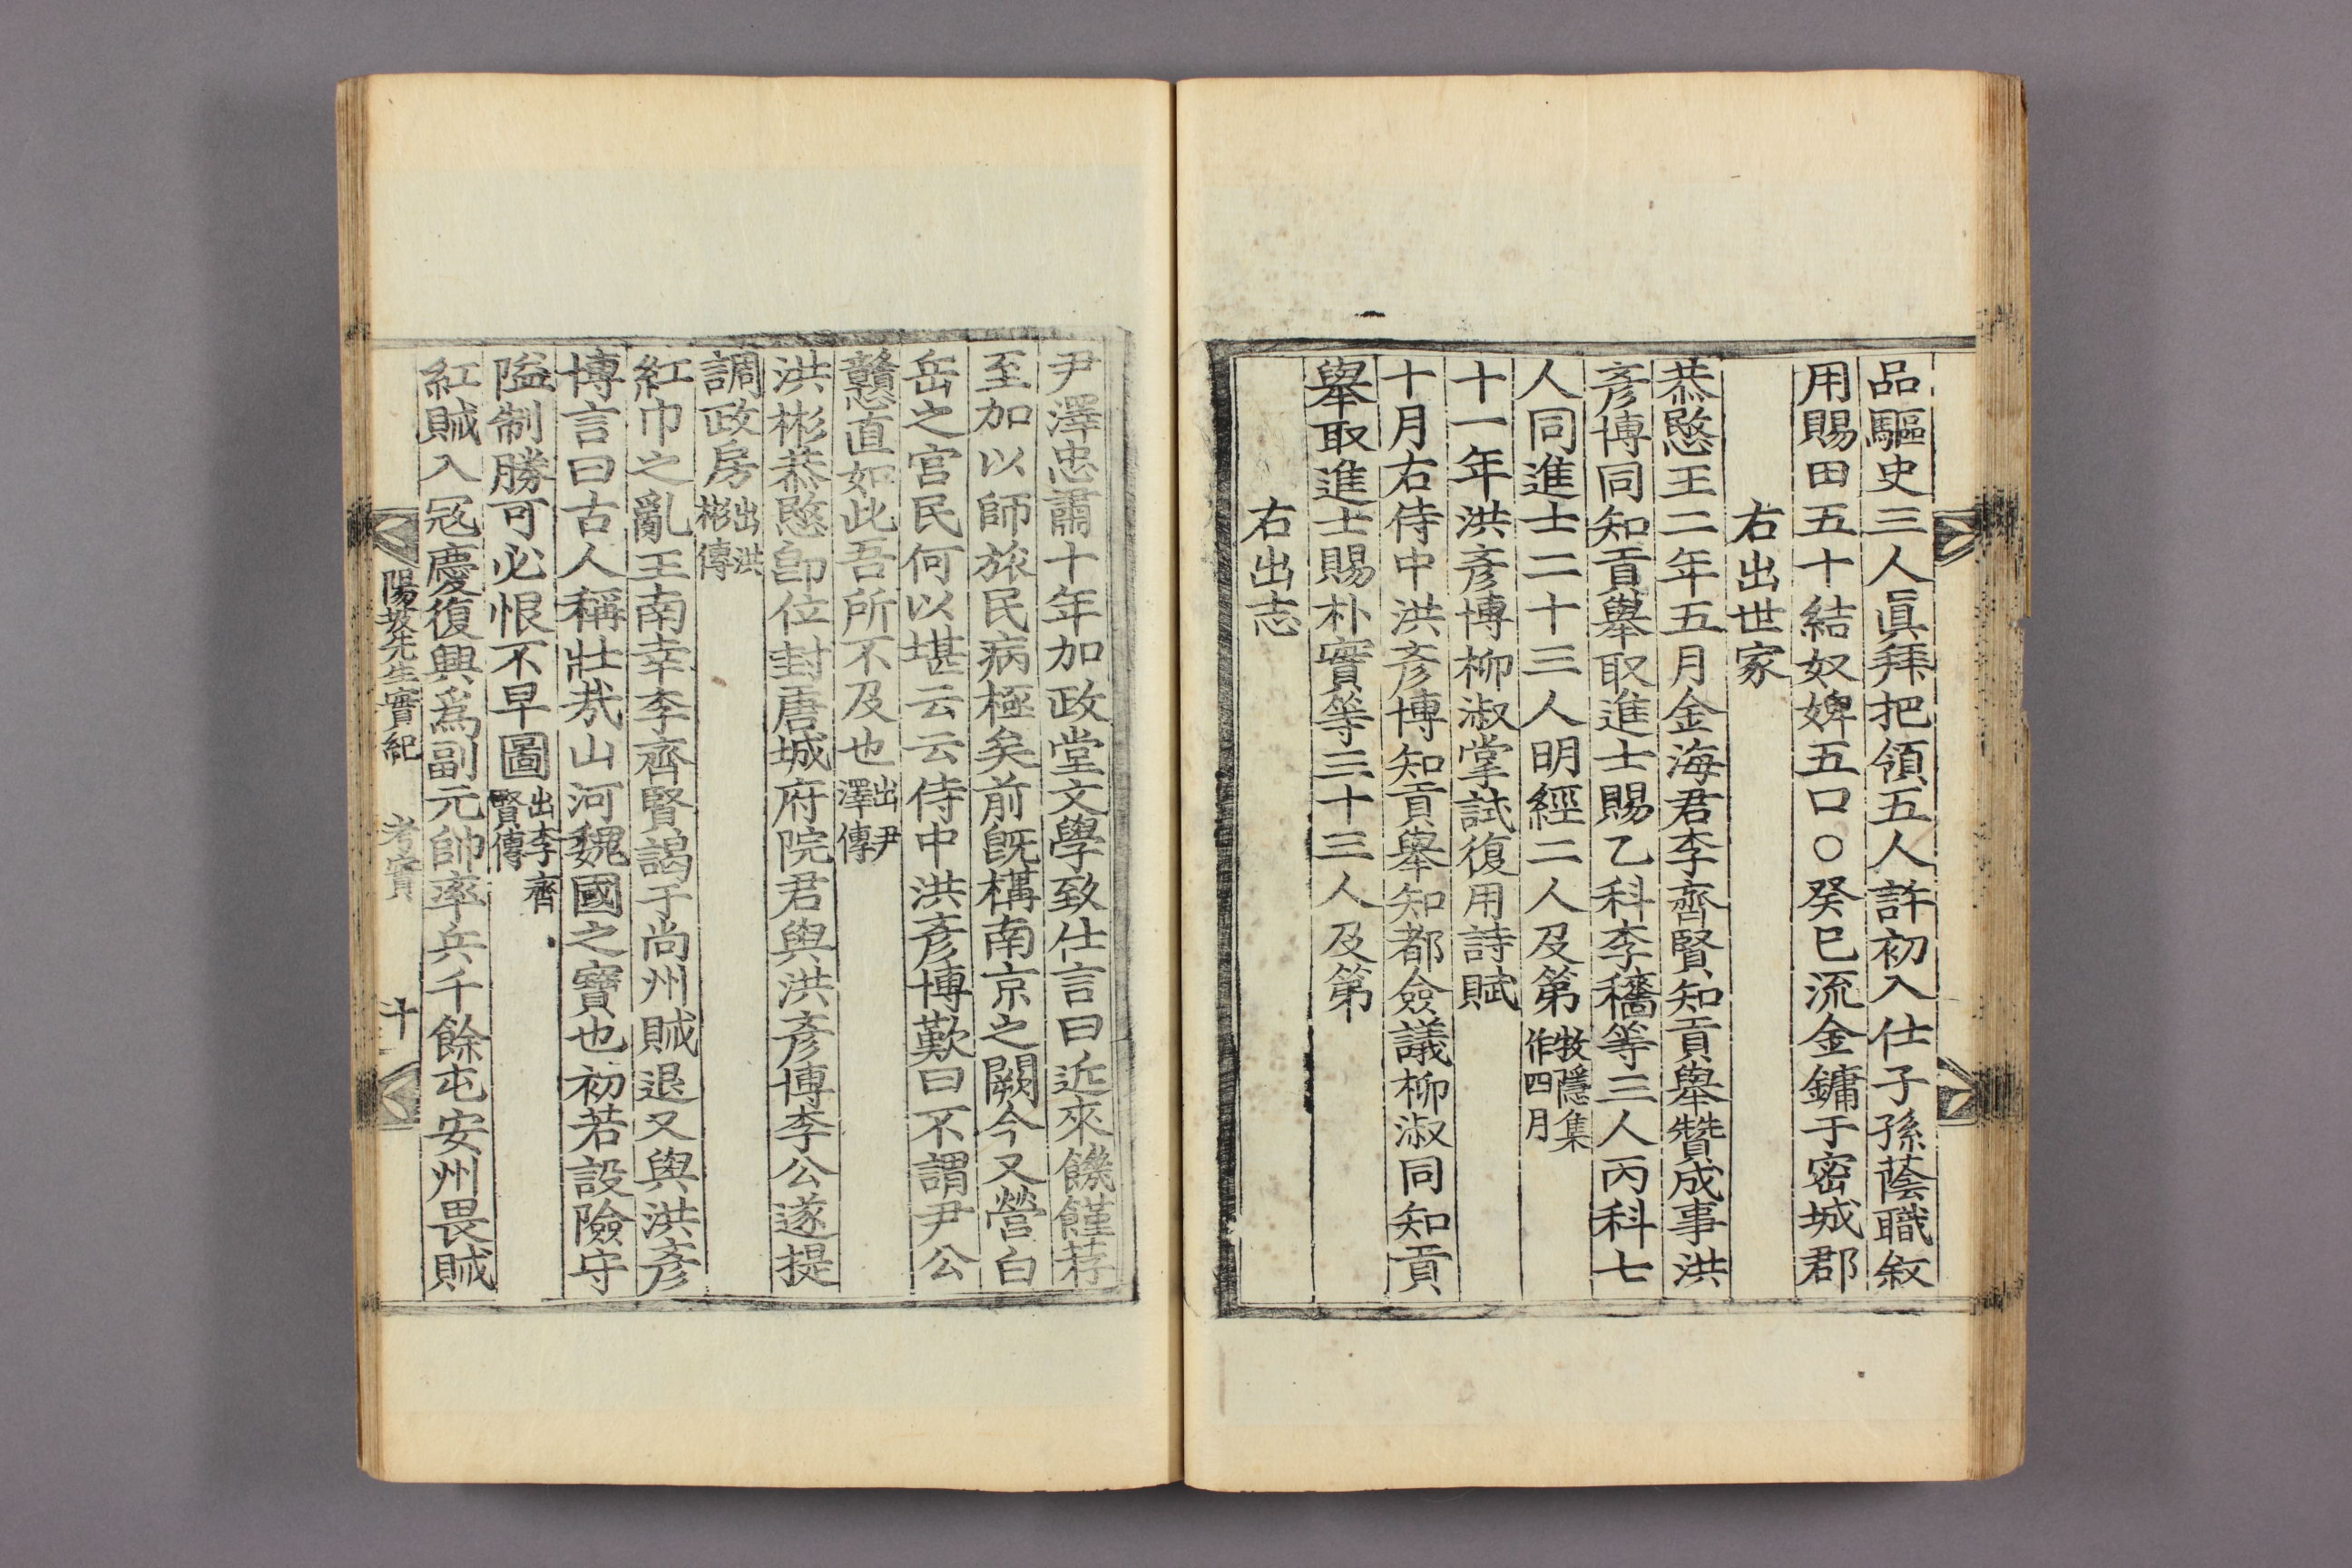 品驅史三人眞拜把領五人許初入仕子孫蔭職敍
用賜田五十結奴婢五口○癸巳流金鏞于密城郡
右出世家
恭愍王二年五月金海君李齊賢知貢擧贊成事洪
彥博同知貢擧取進士賜乙科李穡等三人丙科七
人同進士二十三人明經二人及第牧隱集作四月
十一年洪彥博柳淑掌試復用詩賦
十月右侍中洪彥博知貢擧知都僉議柳淑同知貢
擧取進士賜朴實等三十三人及第
右出志
尹澤忠肅十年加政堂文學致仕言曰近來饑饉荐
至加以師旅民病極矣前旣構南京之闕今又營白
岳之宮民何以堪云云侍中洪彥博歎曰不謂尹公
戇直如此吾所不及也出尹澤傳
洪彬恭愍卽位封唐城府院君與洪彥博李公遂提
調政房出洪彬傳
紅巾之亂王南幸李齊賢謁于尙州賊退又與洪彥
博言曰古人稱壯哉山河魏國之寶也初若設險守
隘制勝可必恨不早圖出李齊賢傳
紅賊入寇慶復興爲副元帥率兵千餘屯安州畏賊
陽坡先生實紀 考實 十